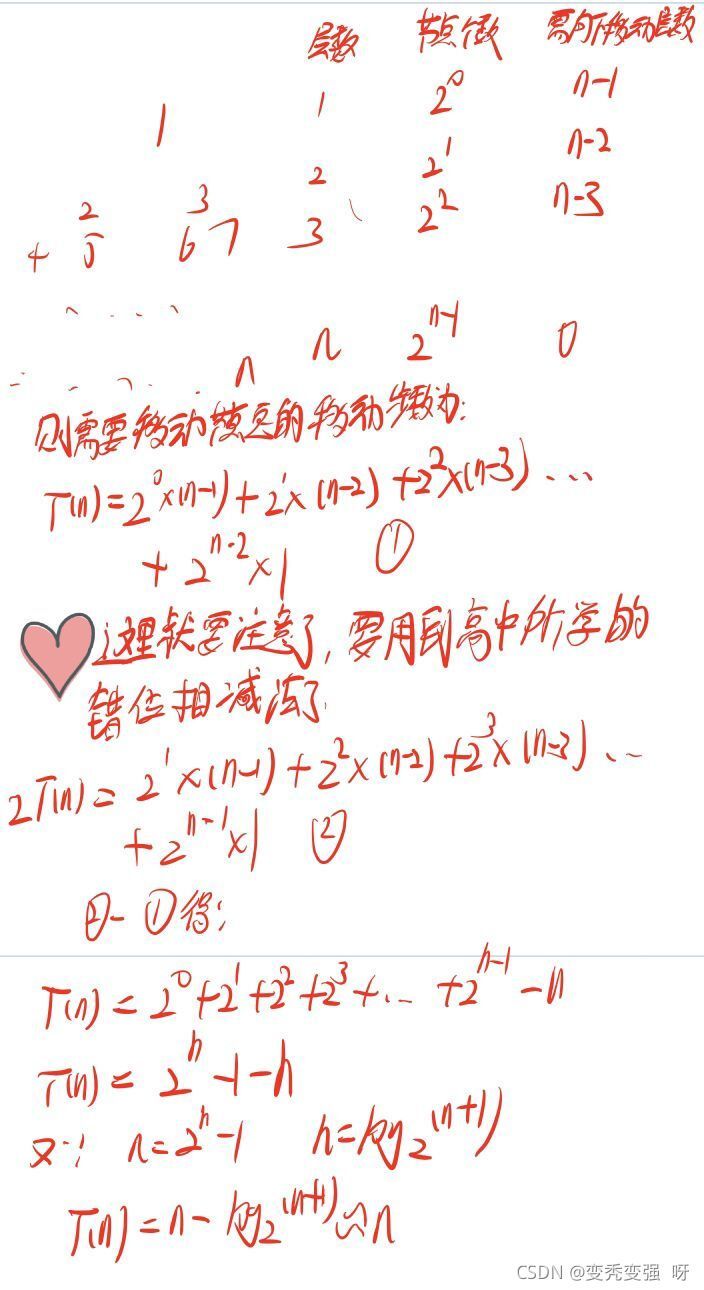 层数 节点个数 需向下移动层数
1 1 2^0 n-1
2 2^1 n-2
2 3
4 5 6 7 3 2^2 n-3
....
.... n n 2^{n-1} 0
则需要移动节点的移动步数为:
T(n)=2^0×(n-1)+2^1×(n-2)+2^2×(n-3)...
+2^{n-2}×1 ①
这里就要注意了,要用到高中所学的
错位相减法了
2T(n)=2^1×(n-1)+2^2×(n-2)+2^3×(n-3)...
+2^{n-1}×1 ②
②-①得:
T(n)=2^0+2^1+2^2+2^3+...+2^{h-1}-h
T(n)=2^h-1-h
又∵ n=2^h-1 h=log2^(n+1)
T(n)=n-log2^(n+1)≈n
CSDN @变秃变强 呀